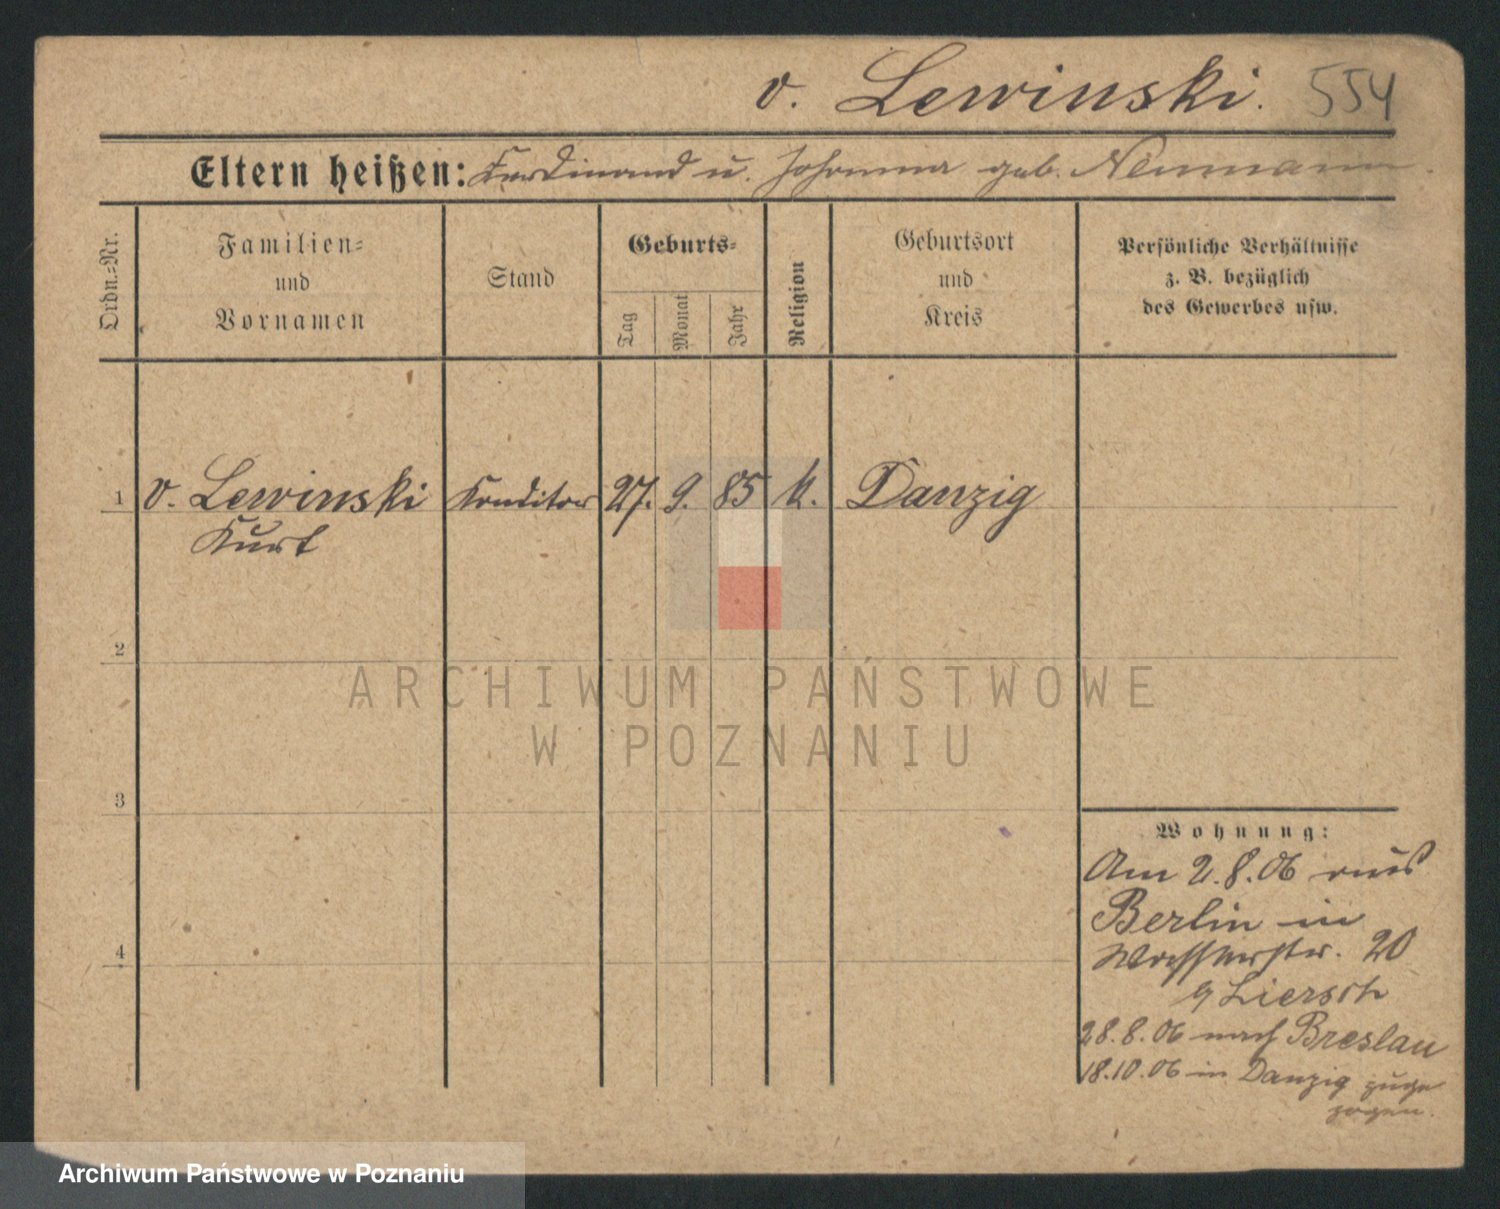 v. Lewinski. 554
Eltern heißen: Ferdinand u. Johanna geb. Neumann.
Ordn.-Nr.
Familien-
und
Vornamen
Stand
Geburts-
Tag
Monat
Jahr
Religion
Geburtsort
und
Kreis
Persönliche Verhältnisse
z. B. bezüglich
des Gewerbes usw.
1 v. Lewinski Konditor 27. 9. 85 k. Danzig
Kurt
2
ARCHIWUM PAŃSTWOWE
W POZNANIU
3
Wohnung:
Am 2.8.06 aus
Berlin in
Wasserstr. 20
Liersch
4
28.8.06 nach Breslau
18.10.06 in Danzig zuge
zogen.
Archiwum Państwowe w Poznaniu